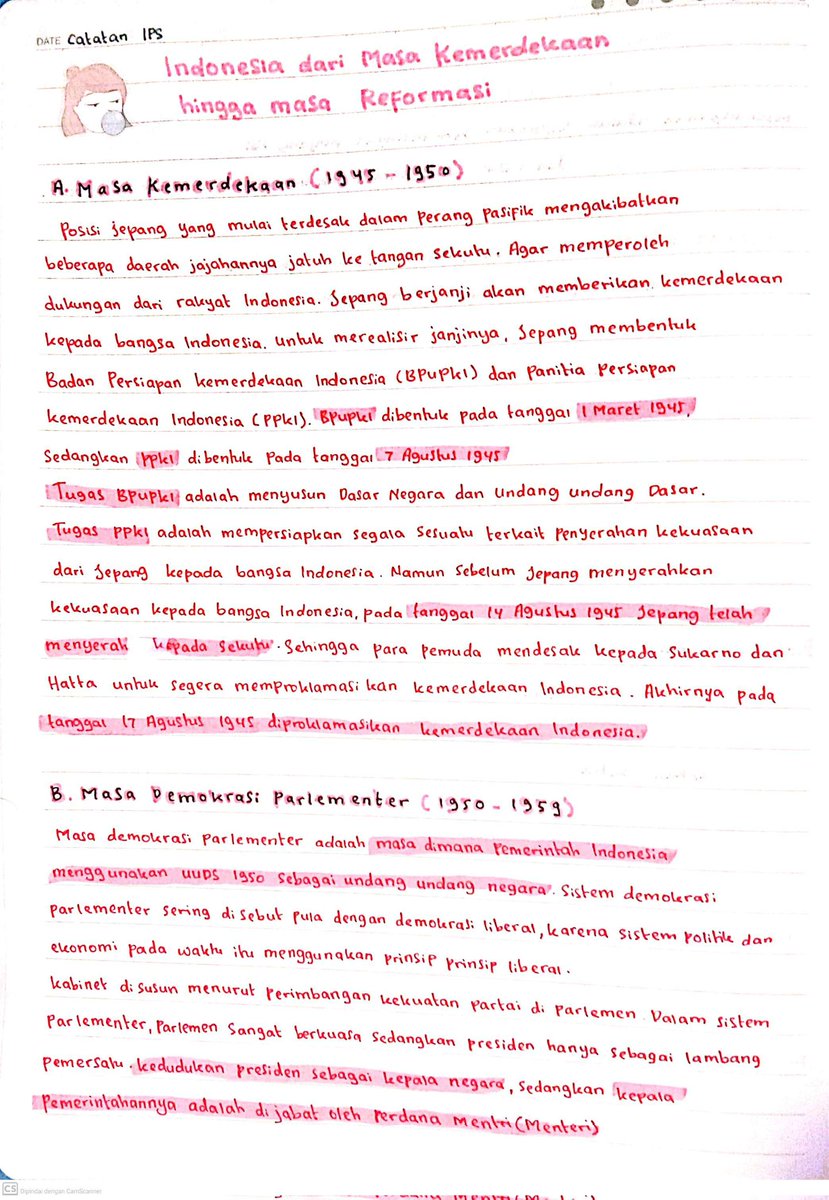 DATE Catatan IPS
Indonesia dari Masa Kemerdekaan
hingga masa Reformasi
A. Masa Kemerdekaan (1945 - 1950)
Posisi jepang yang mulai terdesak dalam perang pasifik mengakibatkan
beberapa daerah jajahannya jatuh ke tangan sekutu. Agar memperoleh
dukungan dari rakyat Indonesia. Jepang berjanji akan memberikan kemerdekaan
kepada bangsa Indonesia. untuk merealisir janjinya, Jepang membentuk
Badan Persiapan kemerdekaan Indonesia (BPUPKI) dan Panitia Persiapan
kemerdekaan Indonesia (PPKI). BPUPKI dibentuk pada tanggal 1 Maret 1945,
Sedangkan PPKI dibentuk Pada tanggal 7 Agustus 1945
Tugas BPUPKI adalah menyusun Dasar Negara dan Undang undang Dasar.
Tugas PPKI adalah mempersiapkan segala Sesuatu terkait Penyerahan kekuasaan
dari Jepang kepada bangsa Indonesia. Namun Sebelum Jepang menyerahkan
kekuasaan kepada bangsa Indonesia, pada tanggal 14 Agustus 1945 Jepang telah
menyerah kepada Sekutu. Sehingga para pemuda mendesak kepada Sukarno dan
Hatta untuk segera memproklamasikan kemerdekaan Indonesia. Akhirnya pada
tanggal 17 Agustus 1945 diproklamasikan kemerdekaan Indonesia.
B. Masa Demokrasi Parlementer (1950 - 1959)
Masa demokrasi parlementer adalah masa dimana Pemerintah Indonesia
menggunakan UUDS 1950 sebagai undang undang negara. Sistem demokrasi
parlementer sering di sebut pula dengan demokrasi liberal, karena sistem politik dan
ekonomi pada waktu itu menggunakan prinsip prinsip liberal.
kabinet di susun menurut perimbangan kekuatan partai di parlemen Dalam sistem
Parlementer, Parlemen Sangat berkuasa Sedangkan presiden hanya sebagai lambang
pemersatu. kedudukan presiden sebagai kepala negara, Sedangkan kepala
Pemerintahannya adalah di jabat oleh Perdana Mentri (Menteri)
CS Dipindai dengan CamScanner